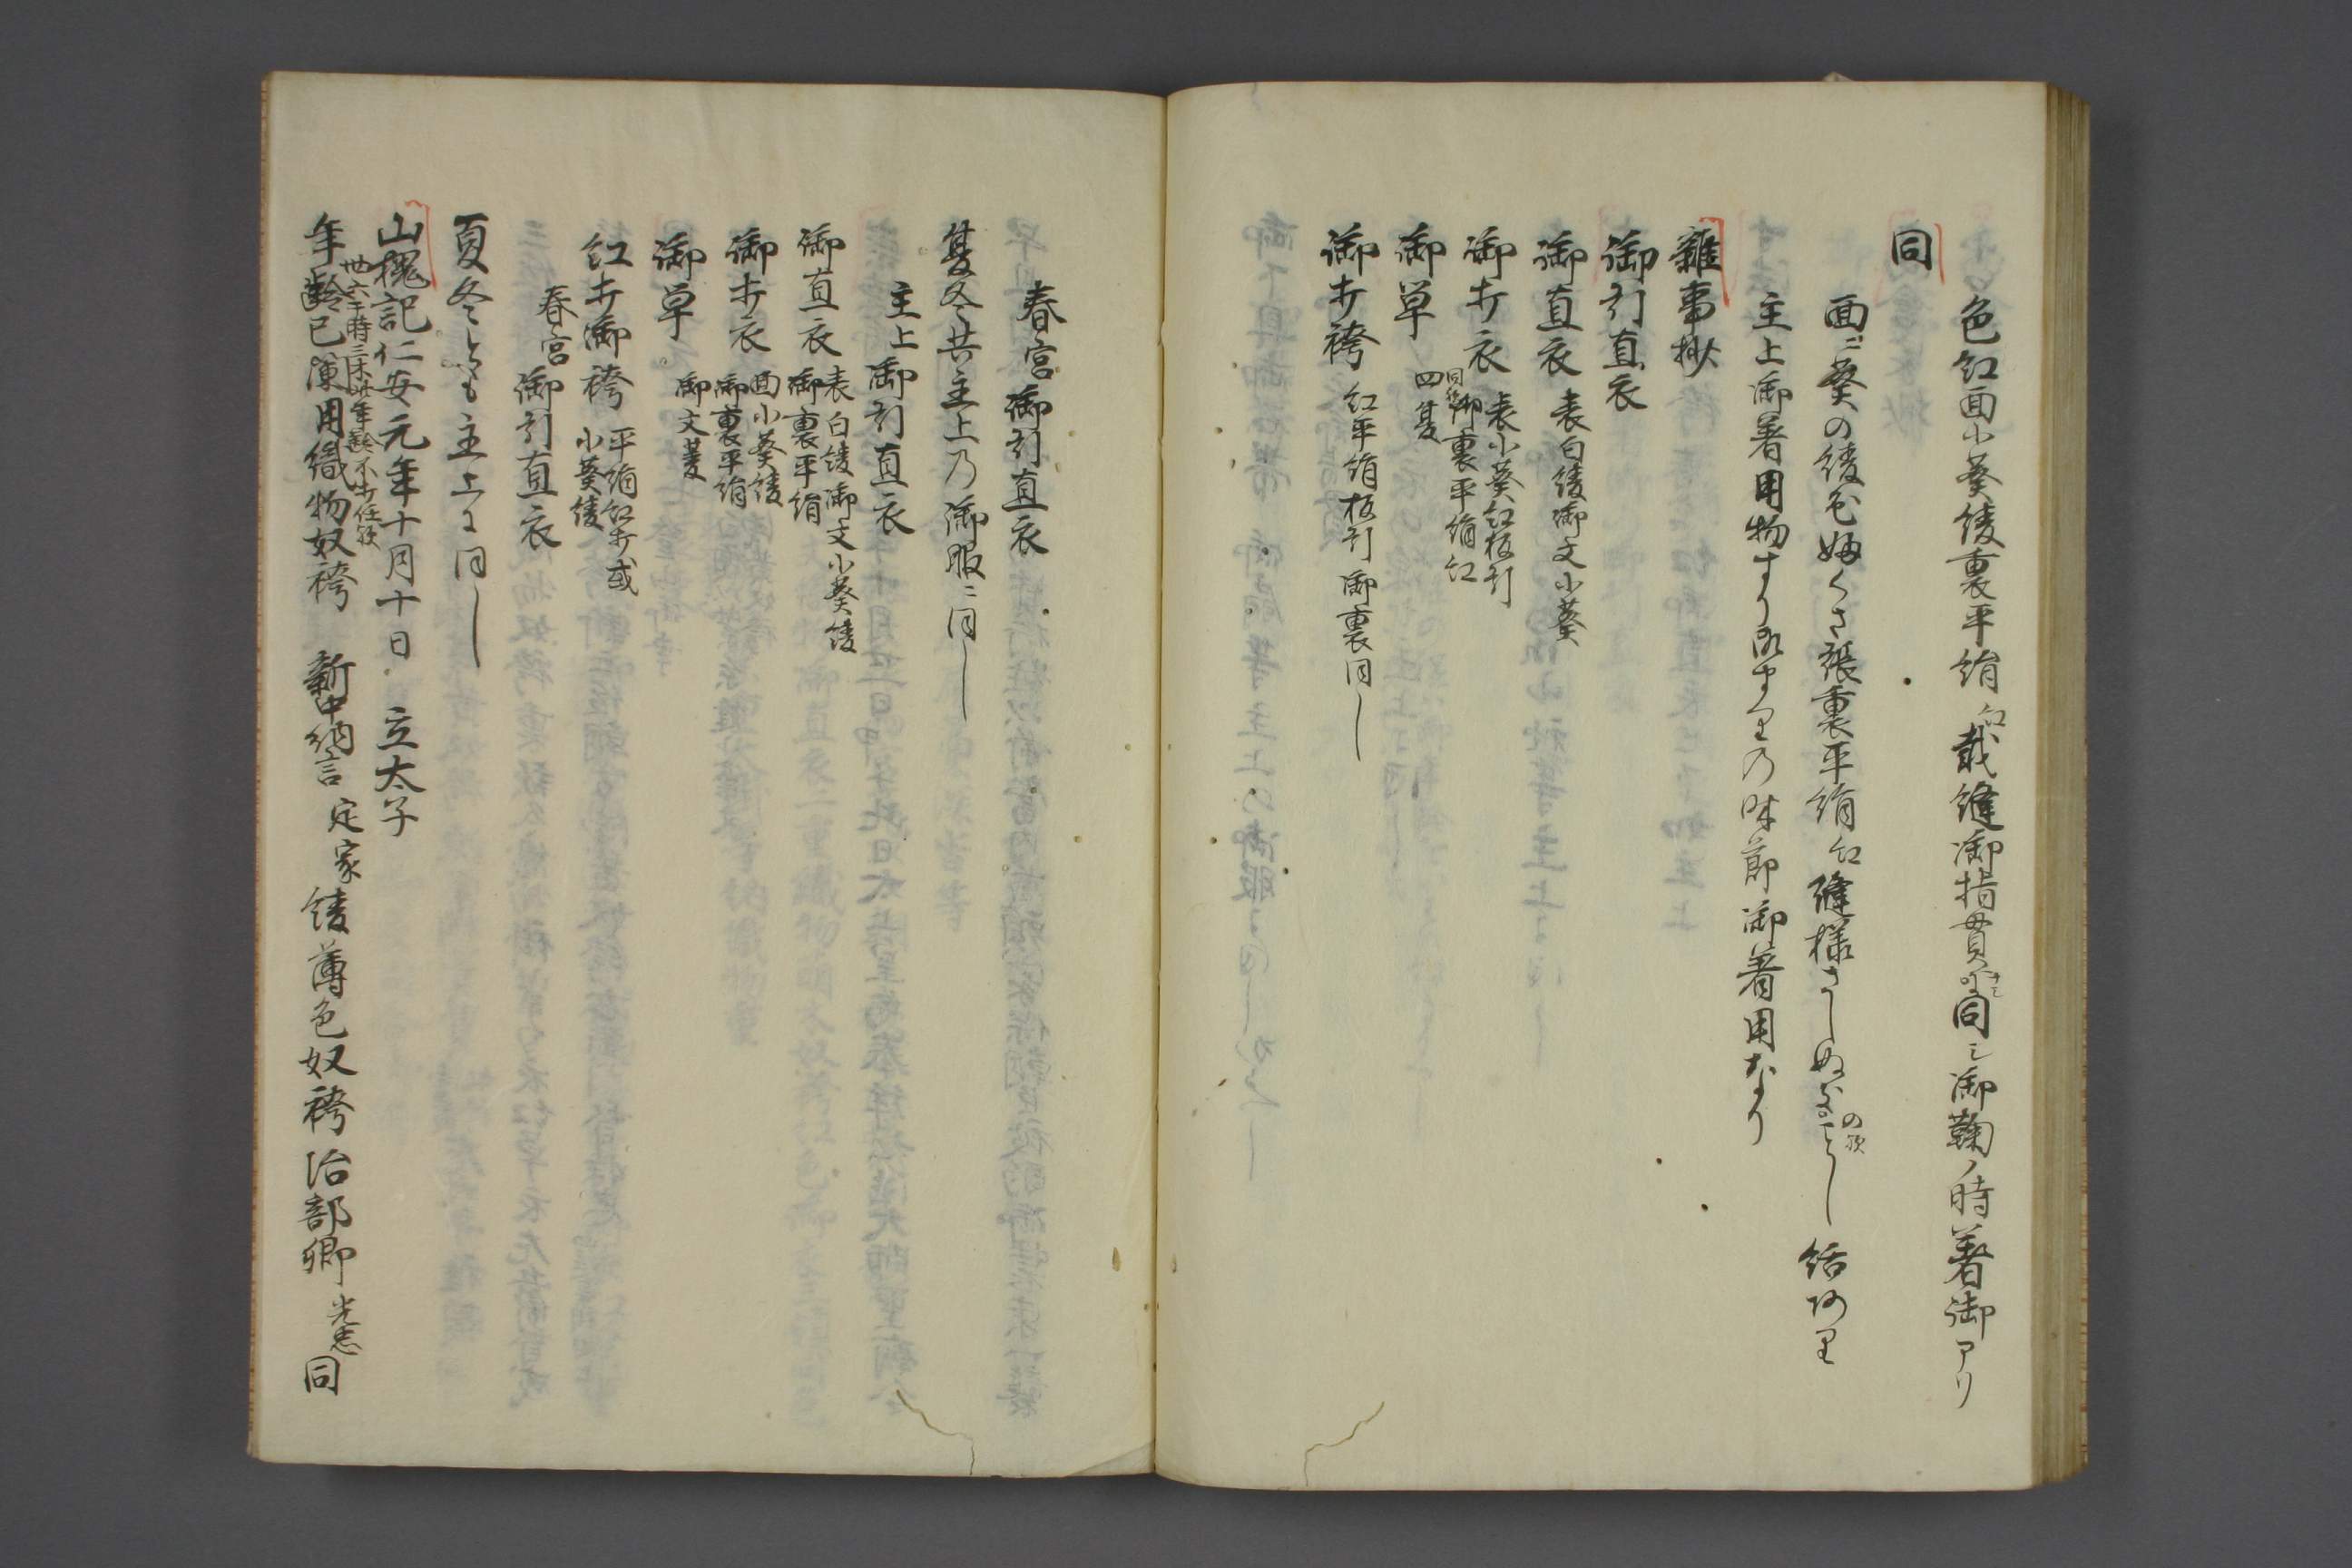 色紅面小葵綾裏平絹紅裁縫御指貫ニ同シ御鞠ノ時着御アリ
同
面ニ葵の綾色ふくさ張裏平絹紅縫様さしぬきのことし括アリ
主上御着用物すり

御着用なり
雜事抄
御引直衣
御直衣 表白綾御文小葵
御打衣 表小葵紅板引
御裏平絹紅
御単 四菱
御打袴 紅平絹板引御裏同し
春宮御引直衣
夏冬共主上乃御服ニ同し
主上御引直衣
御直衣 表白綾御文小葵綾
御裏平絹
御打衣 面小葵綾
御裏平絹
御単 御文菱
紅打御袴 平絹紅打或
小葵綾
春宮御引直衣
夏冬とも主上に同し
山槐記仁安元年十月十日 立太子
年齢已闌用織物奴袴 新中納言 定家 綾薄色奴袴治部卿 光忠 同